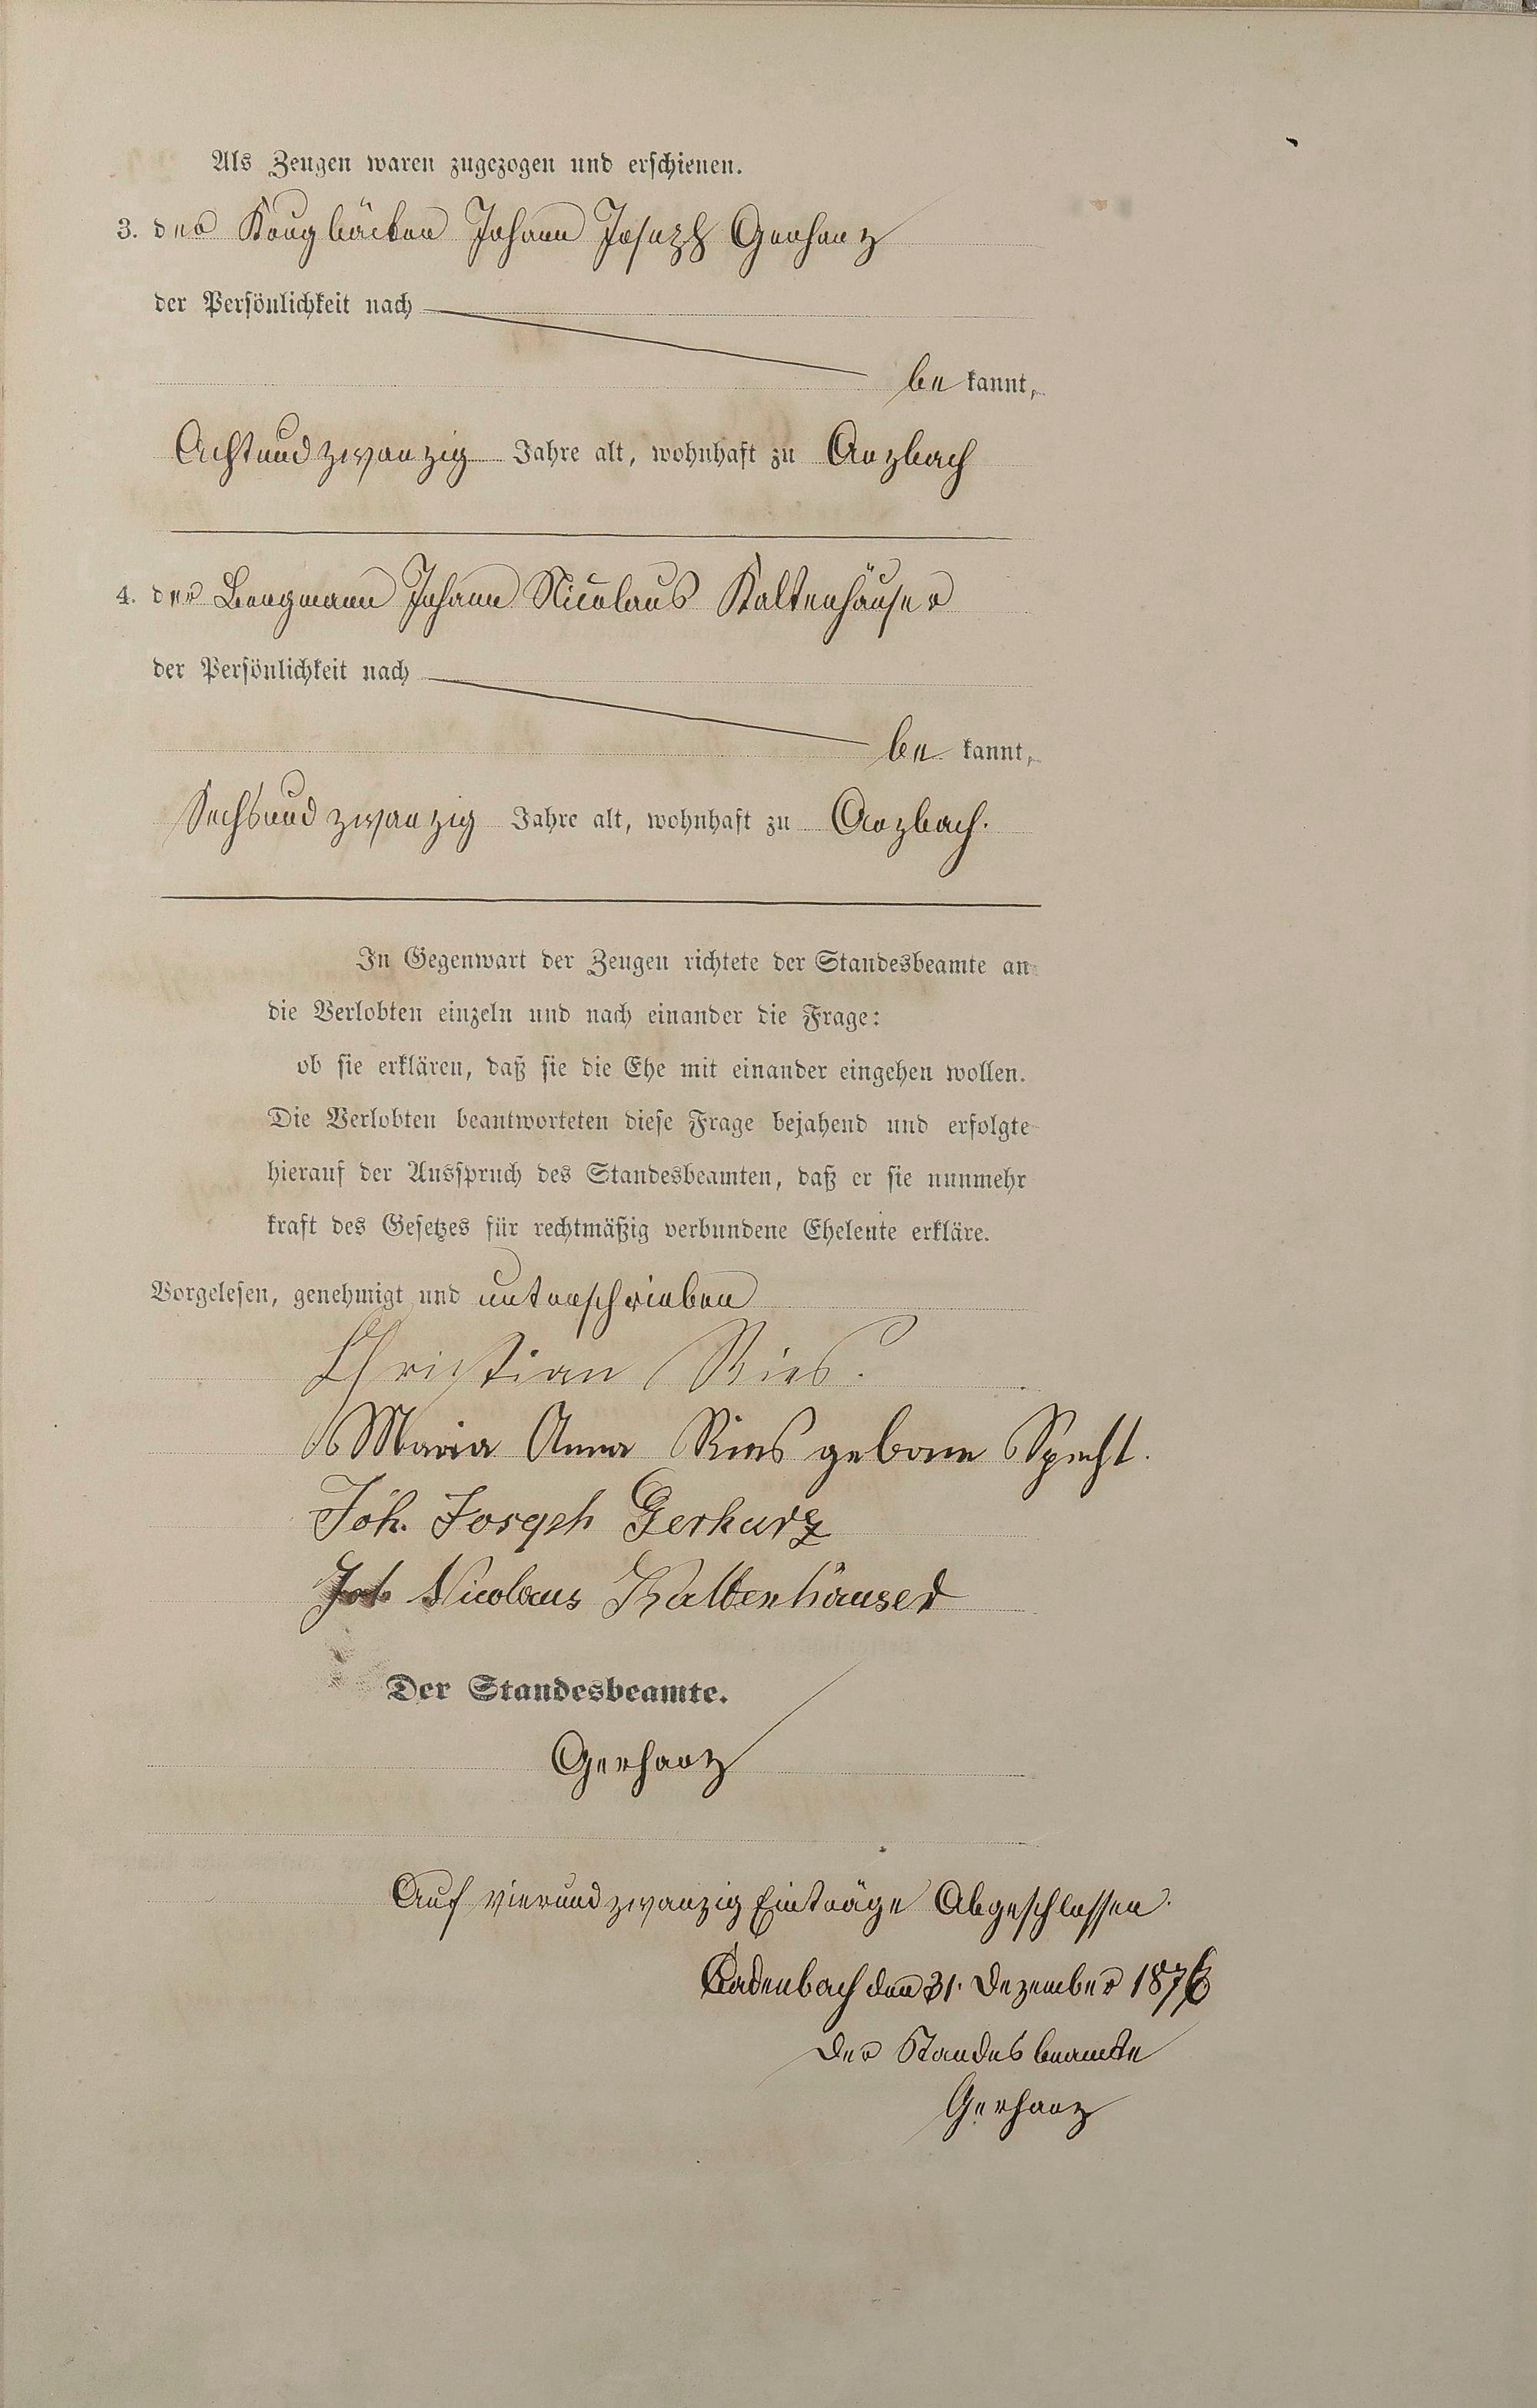 Als Zeugen waren zugezogen und erschienen.
3. der Krugbäcker Johann Joseph Gerharz
der Persönlichkeit nach
be kannt,
Achtund zwanzig Jahre alt, wohnhaft zu Arzbach
4. der Bergmann Johann Nicolaus Kaltenhäuser
der Persönlichkeit nach
be kannt,
Sechsund zwanzig Jahre alt, wohnhaft zu Arzbach.
In Gegenwart der Zeugen richtete der Standesbeamte an
die Verlobten einzeln und nach einander die Frage:
ob sie erklären, daß sie die Ehe mit einander eingehen wollen.
Die Verlobten beantworteten diese Frage bejahend und erfolgte
hierauf der Ausspruch des Standesbeamten, daß er sie nunmehr
kraft des Gesetzes für rechtmäßig verbundene Eheleute erkläre.
Vorgelesen, genehmigt und unterschrieben
Christian Ries.
Maria Anna Ries geborne Specht.
Joh. Joseph Gerharz
Joh Nicolaus Kaltenhäuser
Der Standesbeamte.
Gerharz
Auf vierundzwanzig Einträge Abgeschlossen.
Cadenbach den 31. Dezember 1876
Der Standesbeamte
Gerharz